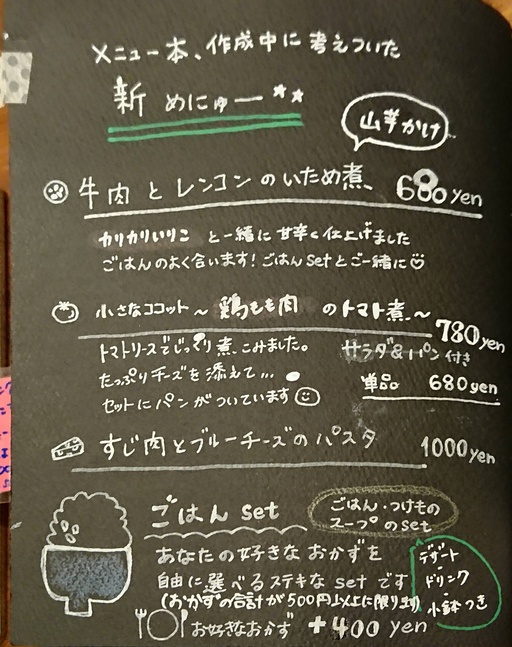 メニュー本、作成中に考えついた
新 めにゅー
山芋かけ
牛肉とレンコンのいため煮 680yen
カリカリいりこ と一緒に甘辛く仕上げました
ごはんのよく合います!ごはんsetとご一緒に
小さなココット〜鶏もも肉 のトマト煮〜 780yen
トマトソースでじっくり煮こみました。
サラダ&パン付き
たっぷりチーズを添えて...
単品 680yen
セットにパンがついています
すじ肉とブルーチーズのパスタ 1000yen
ごはんset
ごはん・つけもの
スープのset
あなたの好きなおかずを
自由に選べるステキなsetです
(おかずの合計が500円以上に限ります)
お好きなおかず +400yen
デザート
ドリンク
小鉢つき